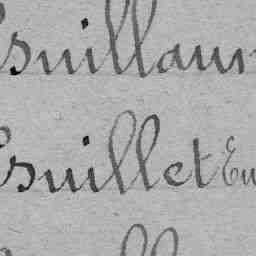 Guillaum
Guillet Eu